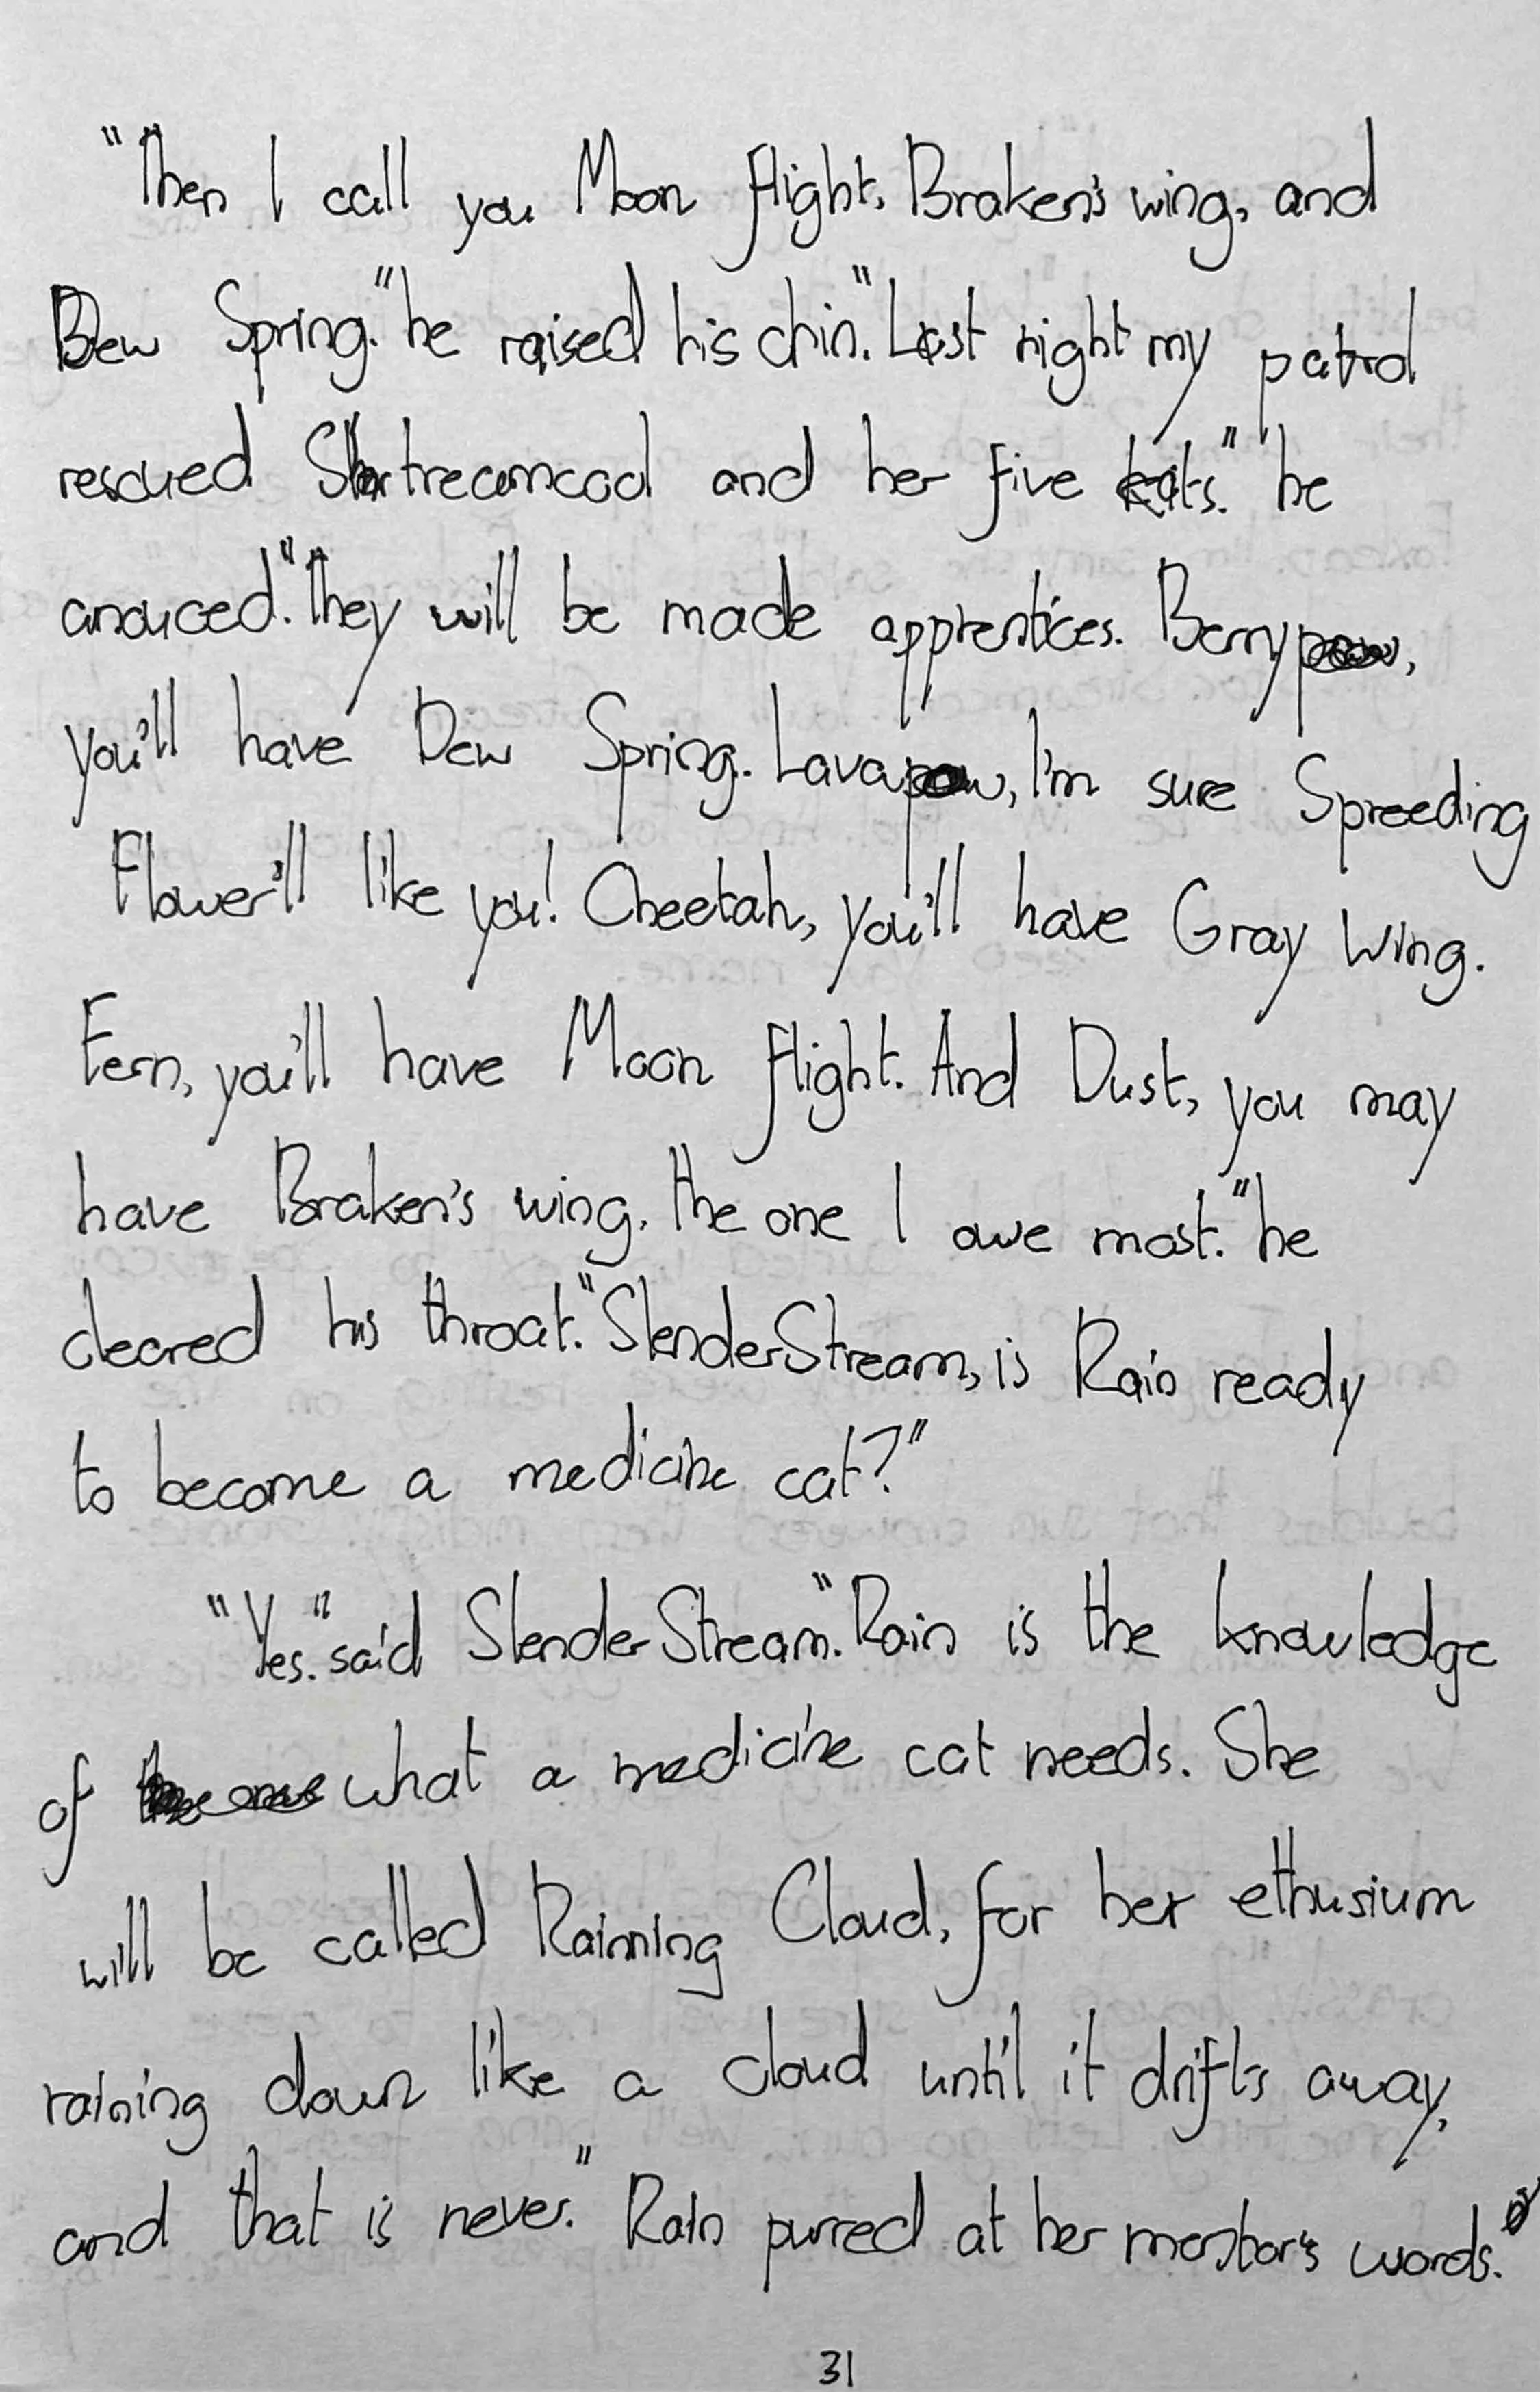 "Then I call you Moon flight, Braken's wing, and
Dew Spring." he raised his chin. "Last night my patrol
rescued Streamcool and her five kits." he
anouced. "They will be made apprentices. Berry,
you'll have Dew Spring. Lava, I'm sure Spreeding
Flower'll like you! Cheetah, you'll have Gray Wing.
Fern, you'll have Moon flight. And Dust, you may
have Braken's wing, the one I owe most." he
cleared his throat. "SlenderStream, is Rain ready
to become a medicine cat?"
"Yes." said SlenderStream. "Rain is the knowledge
of what a medicine cat needs. She
will be called Raining Cloud, for her ethusium
raining down like a cloud until it drifts away,
and that is never." Rain purred at her mentor's words.
31